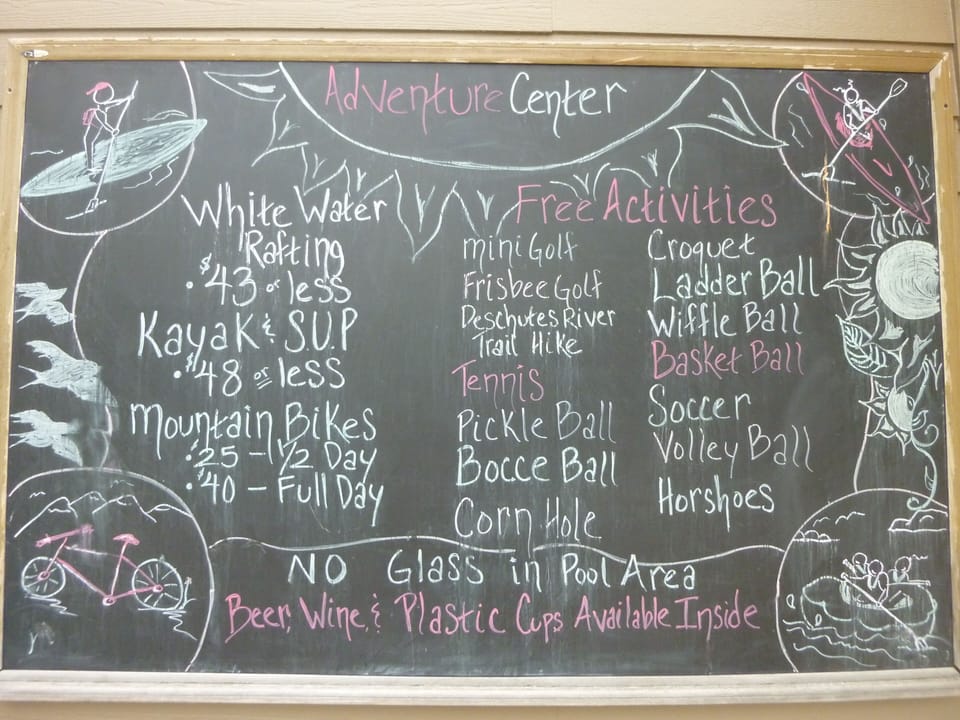 Adventure Center
White Water
Rafting
• $43 or less
Kayak & S.U.P
• $48 or less
Mountain Bikes
• $25 - 1/2 Day
• $40 - Full Day
Free Activities
mini Golf
Frisbee Golf
Deschutes River
Trail Hike
Tennis
Pickle Ball
Bocce Ball
Corn Hole
Croquet
Ladder Ball
Wiffle Ball
Basket Ball
Soccer
Volley Ball
Horshoes
NO Glass in Pool Area
Beer, Wine, & Plastic Cups Available Inside